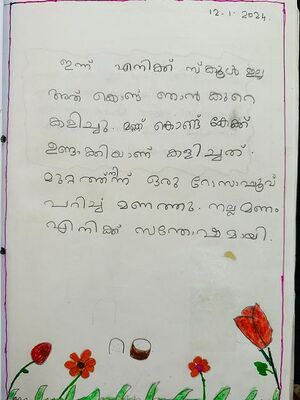 12.1.2024.
ഇന്ന് എനിക്ക് സ്കൂൾ ഇല്ല
അത് കൊണ്ട് ഞാൻ കുറെ
കളിച്ചു. മണ്ണ് കൊണ്ട് കേക്ക്
ഉണ്ടാക്കിയാണ് കളിച്ചത്.
മുറ്റത്ത് നിന്ന് ഒരു റോസാപ്പൂവ്
പറിച്ച് മണത്തു. നല്ല മണം
എനിക്ക് സന്തോഷമായി.